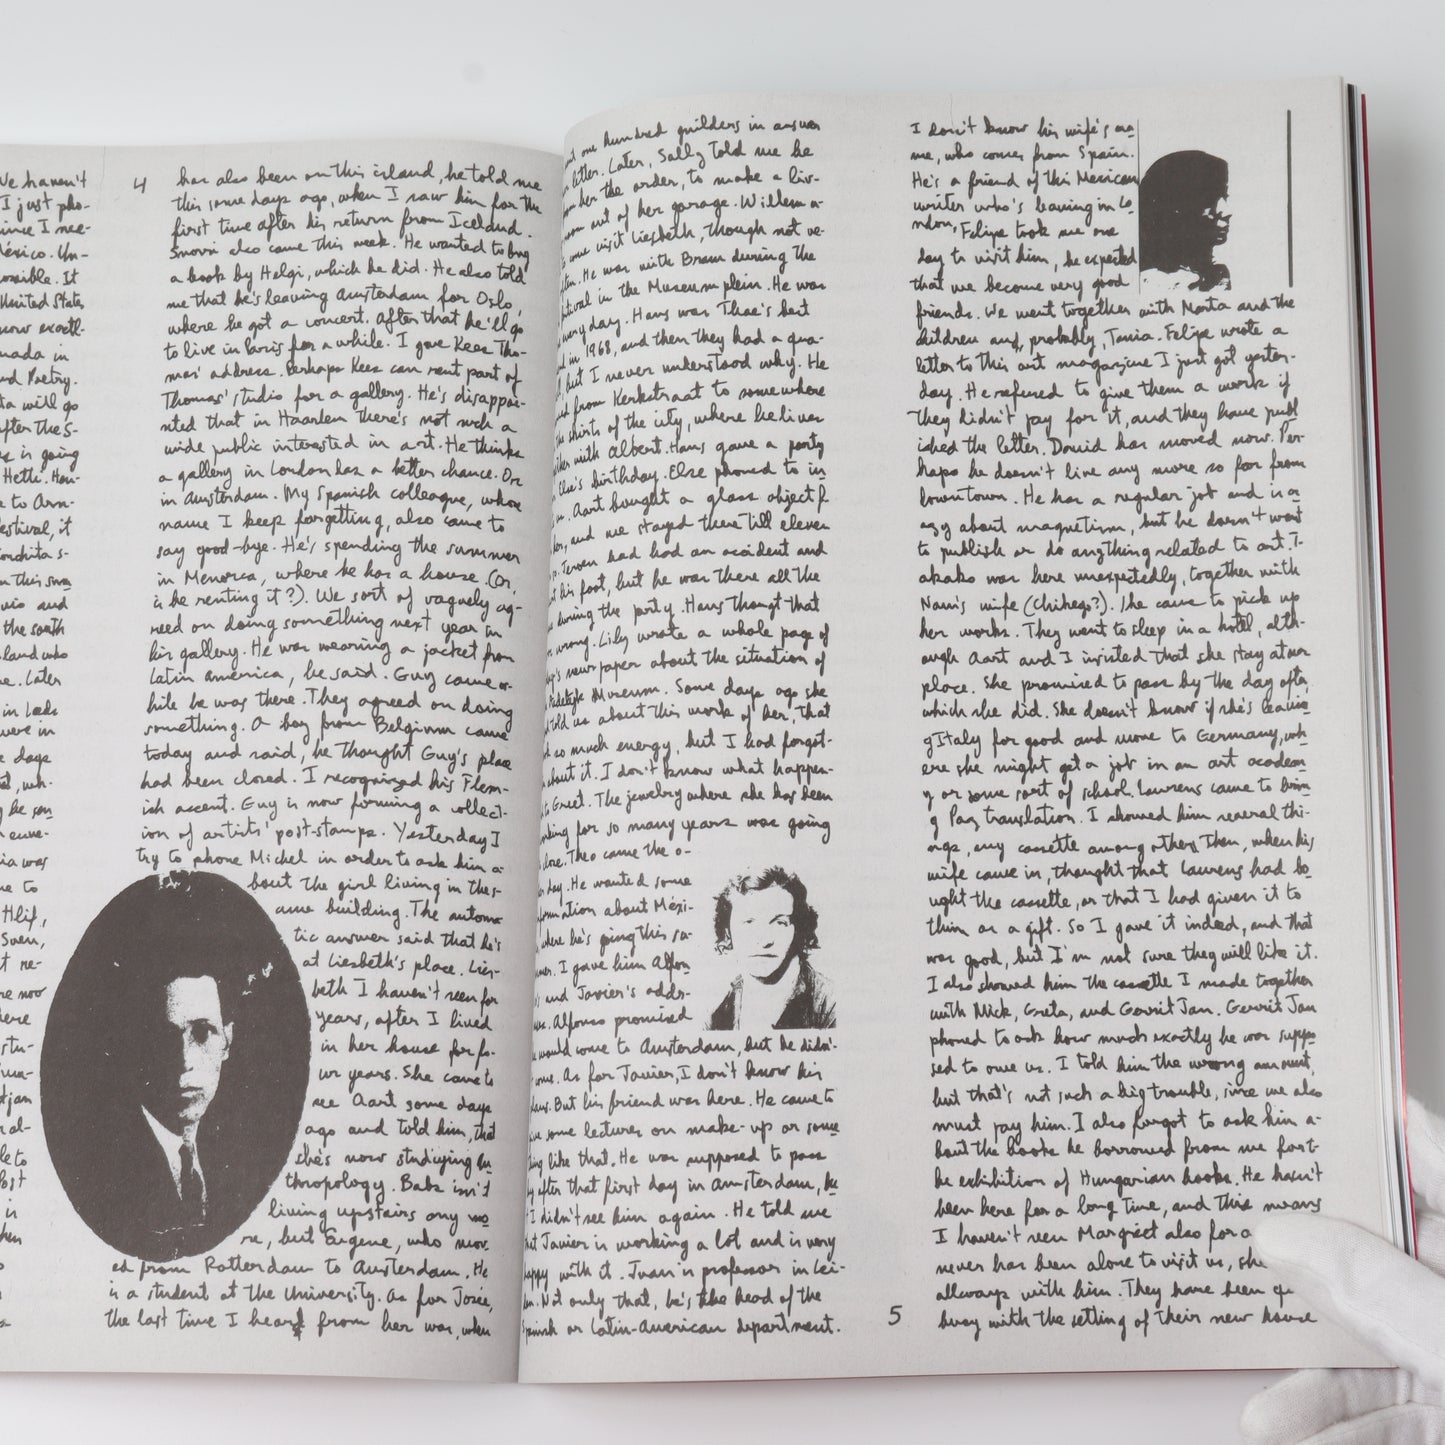 We haven't
I just pho-
since I mee-
México. Un-
possible. It
United States
now exactl-
nada in
nd Poetry.
ta will go
after the S-
is going
Hetti. Han-
e to Arn-
estival, it
onchita s-
n this swa
uis and
the south
land who
e. Later
in Leeds
were in
e days
y be son
ia was
me to
Hlif,
Sven,
t re-
re now
here
stu-
tjan
al-
le to
Post
is
4
has also been on this island, he told me
this some days ago, when I saw him for the
first time after his return from Iceland.
Snorri also came this week. He wanted to buy
a book by Helgi, which he did. He also told
me that he's leaving Amsterdam for Oslo,
where he got a concert. After that he'll go
to live in Paris for a while. I gave Kees Tho-
mas' address. Perhaps Kees can rent part of
Thomas' studio for a gallery. He's disappoi-
nted that in Haarlem there's not such a
wide public interested in art. He thinks
a gallery in London has a better chance. Or
in Amsterdam. My Spanish colleague, whose
name I keep forgetting, also came to
say good-bye. He's spending the summer
in Menorca, where he has a house. (Or,
is he renting it?). We sort of vaguely ag-
reed on doing something next year in
his gallery. He was wearing a jacket from
Latin America, he said. Guy came w-
hile he was there. They agreed on doing
something. A boy from Belgium came
today and said, he thought Guy's place
had been closed. I recognized his Flem-
ish accent. Guy is now forming a collect-
ion of artists' post-stamps. Yesterday I
try to phone Michel in order to ask him a-
bout the girl living in the s-
ame building. The automa-
tic answer said that he's
at Liesbeth's place. Lies-
beth I haven't seen for
years, after I lived
in her house for fo-
ur years. She came to
see Aart some days
ago and told him, that
she's now studying an
thropology. Babs isn't
living upstairs any mo
re, but Eugene, who mov-
ed from Rotterdam to Amsterdam. He
is a student at the University. As for Josée,
the last time I heard from her was, when
one hundred guilders in answer
letter. Later, Sally told me he
her the order, to make a liv-
room out of her garage. Willem a-
come visit Liesbeth, though not ve-
ften. He was with Bram during the
stival in the Museumplein. He was
every day. Hans was Thea's best
in 1968, and then they had a qua-
l, but I never understood why. He
from Kerkstraat to somewhere
the skirts of the city, where he lives
with Albert. Hans gave a party
Else's birthday. Else phoned to in
us. Aart bought a glass object f
her, and we stayed there till eleven
Jeroen had had an accident and
his foot, but he was there all the
during the party. Hans thougt that
wrong. Lily wrote a whole page of
newspaper about the situation of
Stedelijk Museum. Some days ago she
told us about this work of her, that
so much energy, but I had forgot-
about it. I don't know what happen-
to Greet. The jewelry where she has been
working for so many years was going
close. Theo came the o-
day. He wanted some
formation about Méxi-
where he's going this su-
mer. I gave him Alfon
and Javier's addr-
Alfonso promised
would come to Amsterdam, but he didn't
come. As for Javier, I don't know his
But his friend was here. He came to
some lectures on make-up or some
thing like that. He was supposed to pass
by after that first day in Amsterdam, he
I didn't see him again. He told me
that Javier is working a lot and is very
happy with it. Juan is professor in Lei-
den. Not only that, he's the head of the
Spanish or Latin-American department.
I don't know his wife's na
me, who comes from Spain.
He's a friend of this Mexican
writer who's leaving in Lo
ndon, Felipe took me one
day to visit him, he expected
that we become very good
friends. We went together with Marta and the
children and, probably, Tania. Felipe wrote a
letter to this art magazine I just got yester-
day. He refused to give them a work if
they didn't pay for it, and they have publ
ished the letter. David has moved now. Per-
haps he doesn't live any more so far from
downtown. He has a regular job and is cr
azy about magnetism, but he doesn't want
to publish or do anything related to art. T-
akako was here unexpectedly, together with
Nam's wife (Chihego?). She came to pick up
her works. They went to sleep in a hotel, alth-
ough Aart and I insisted that she stay at our
place. She promised to pass by the day after,
which she did. She doesn't know if she's leavin
g Italy for good and move to Germany, wh-
ere she might get a job in an art academ
y or some sort of school. Laurens came to brin
g Paz translation. I showed him several thi-
ngs, my cassette among others. Then, when his
wife came in, thought that Laurens had bo
ught the cassette, or that I had given it to
them as a gift. So I gave it indeed, and that
was good, but I'm not sure they will like it.
I also showed him the cassette I made together
with Mick, Greta, and Gerrit Jan. Gerrit Jan
phoned to ask how much exactly he was suppo
sed to owe us. I told him the wrong amount,
but that's not such a big trouble, since we also
must pay him. I also forgot to ask him a-
bout the books he borrowed from me for t-
he exhibition of Hungarian books. He hasn't
been here for a long time, and this means
I haven't seen Margriet also for a
never has been alone to visit us, she
allways with him. They have been
busy with the setting of their new house
5